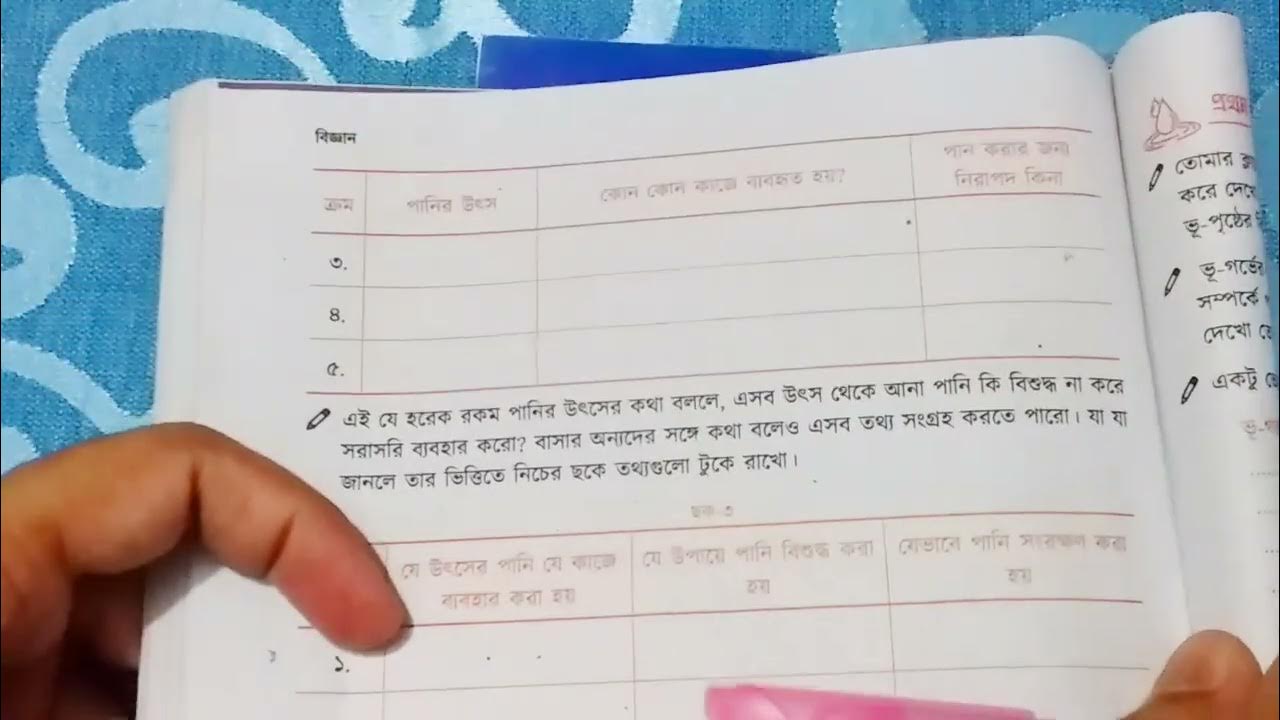 বিজ্ঞান
ক্রম
পানির উৎস
কোন কোন কাজে ব্যবহৃত হয়?
পান করার জন্য
নিরাপদ কিনা
৩.
৪.
৫.
এই যে হরেক রকম পানির উৎসের কথা বললে, এসব উৎস থেকে আনা পানি কি বিশুদ্ধ না করে
সরাসরি ব্যবহার করো? বাসার অন্যদের সঙ্গে কথা বলেও এসব তথ্য সংগ্রহ করতে পারো। যা যা
জানলে তার ভিত্তিতে নিচের ছকে তথ্যগুলো টুকে রাখো।
ছক-৩
যে উৎসের পানি যে কাজে
ব্যবহার করা হয়
যে উপায়ে পানি বিশুদ্ধ করা
হয়
যেভাবে পানি সংরক্ষণ করা
হয়
১.
প্রথম
তোমার
করে দেখে
ভূ-পৃষ্ঠের
ভূ-গর্ভের
সম্পর্কে
দেখো
একটু